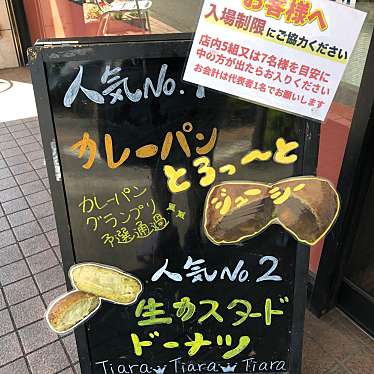 お客様へ
入場制限にご協力ください
店内5組又は7名様を目安に
中の方が出たらお入りください
お会計は代表者1名でお願いします
人気No.1
カレーパン
とろっ〜と
ジューシー
カレーパン
グランプリ
予選通過
人気No.2
生カスタード
ドーナツ
Tiara Tiara Tiara